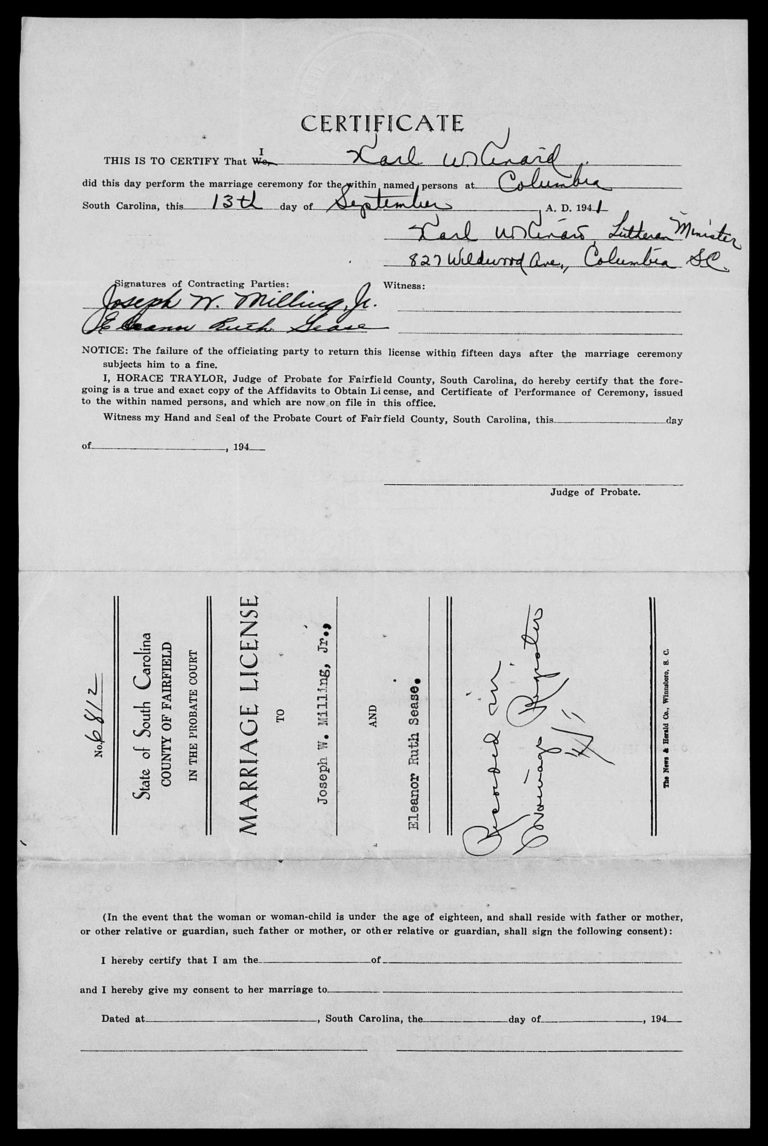 CERTIFICATE
I
THIS IS TO CERTIFY That We, Karl W. Kinard
did this day perform the marriage ceremony for the within named persons at Columbia
South Carolina, this 13th day of September A. D. 1941
Karl W. Kinard, Lutheran Minister
827 Wildwood Ave., Columbia S.C.
Signatures of Contracting Parties: Witness:
Joseph W. Milling, Jr.
Eleanor Ruth Sease
NOTICE: The failure of the officiating party to return this license within fifteen days after the marriage ceremony
subjects him to a fine.
I, HORACE TRAYLOR, Judge of Probate for Fairfield County, South Carolina, do hereby certify that the fore-
going is a true and exact copy of the Affidavits to Obtain License, and Certificate of Performance of Ceremony, issued
to the within named persons, and which are now on file in this office.
Witness my Hand and Seal of the Probate Court of Fairfield County, South Carolina, this day
of , 194
Judge of Probate.
No. 6812
State of South Carolina
COUNTY OF FAIRFIELD
IN THE PROBATE COURT
MARRIAGE LICENSE
TO
Joseph W. Milling, Jr.,
AND
Eleanor Ruth Sease.
Recorded in
Marriage Register
The News & Herald Co., Winnsboro, S. C.
(In the event that the woman or woman-child is under the age of eighteen, and shall reside with father or mother,
or other relative or guardian, such father or mother, or other relative or guardian, shall sign the following consent):
I hereby certify that I am the of
and I hereby give my consent to her marriage to
Dated at , South Carolina, the day of , 194